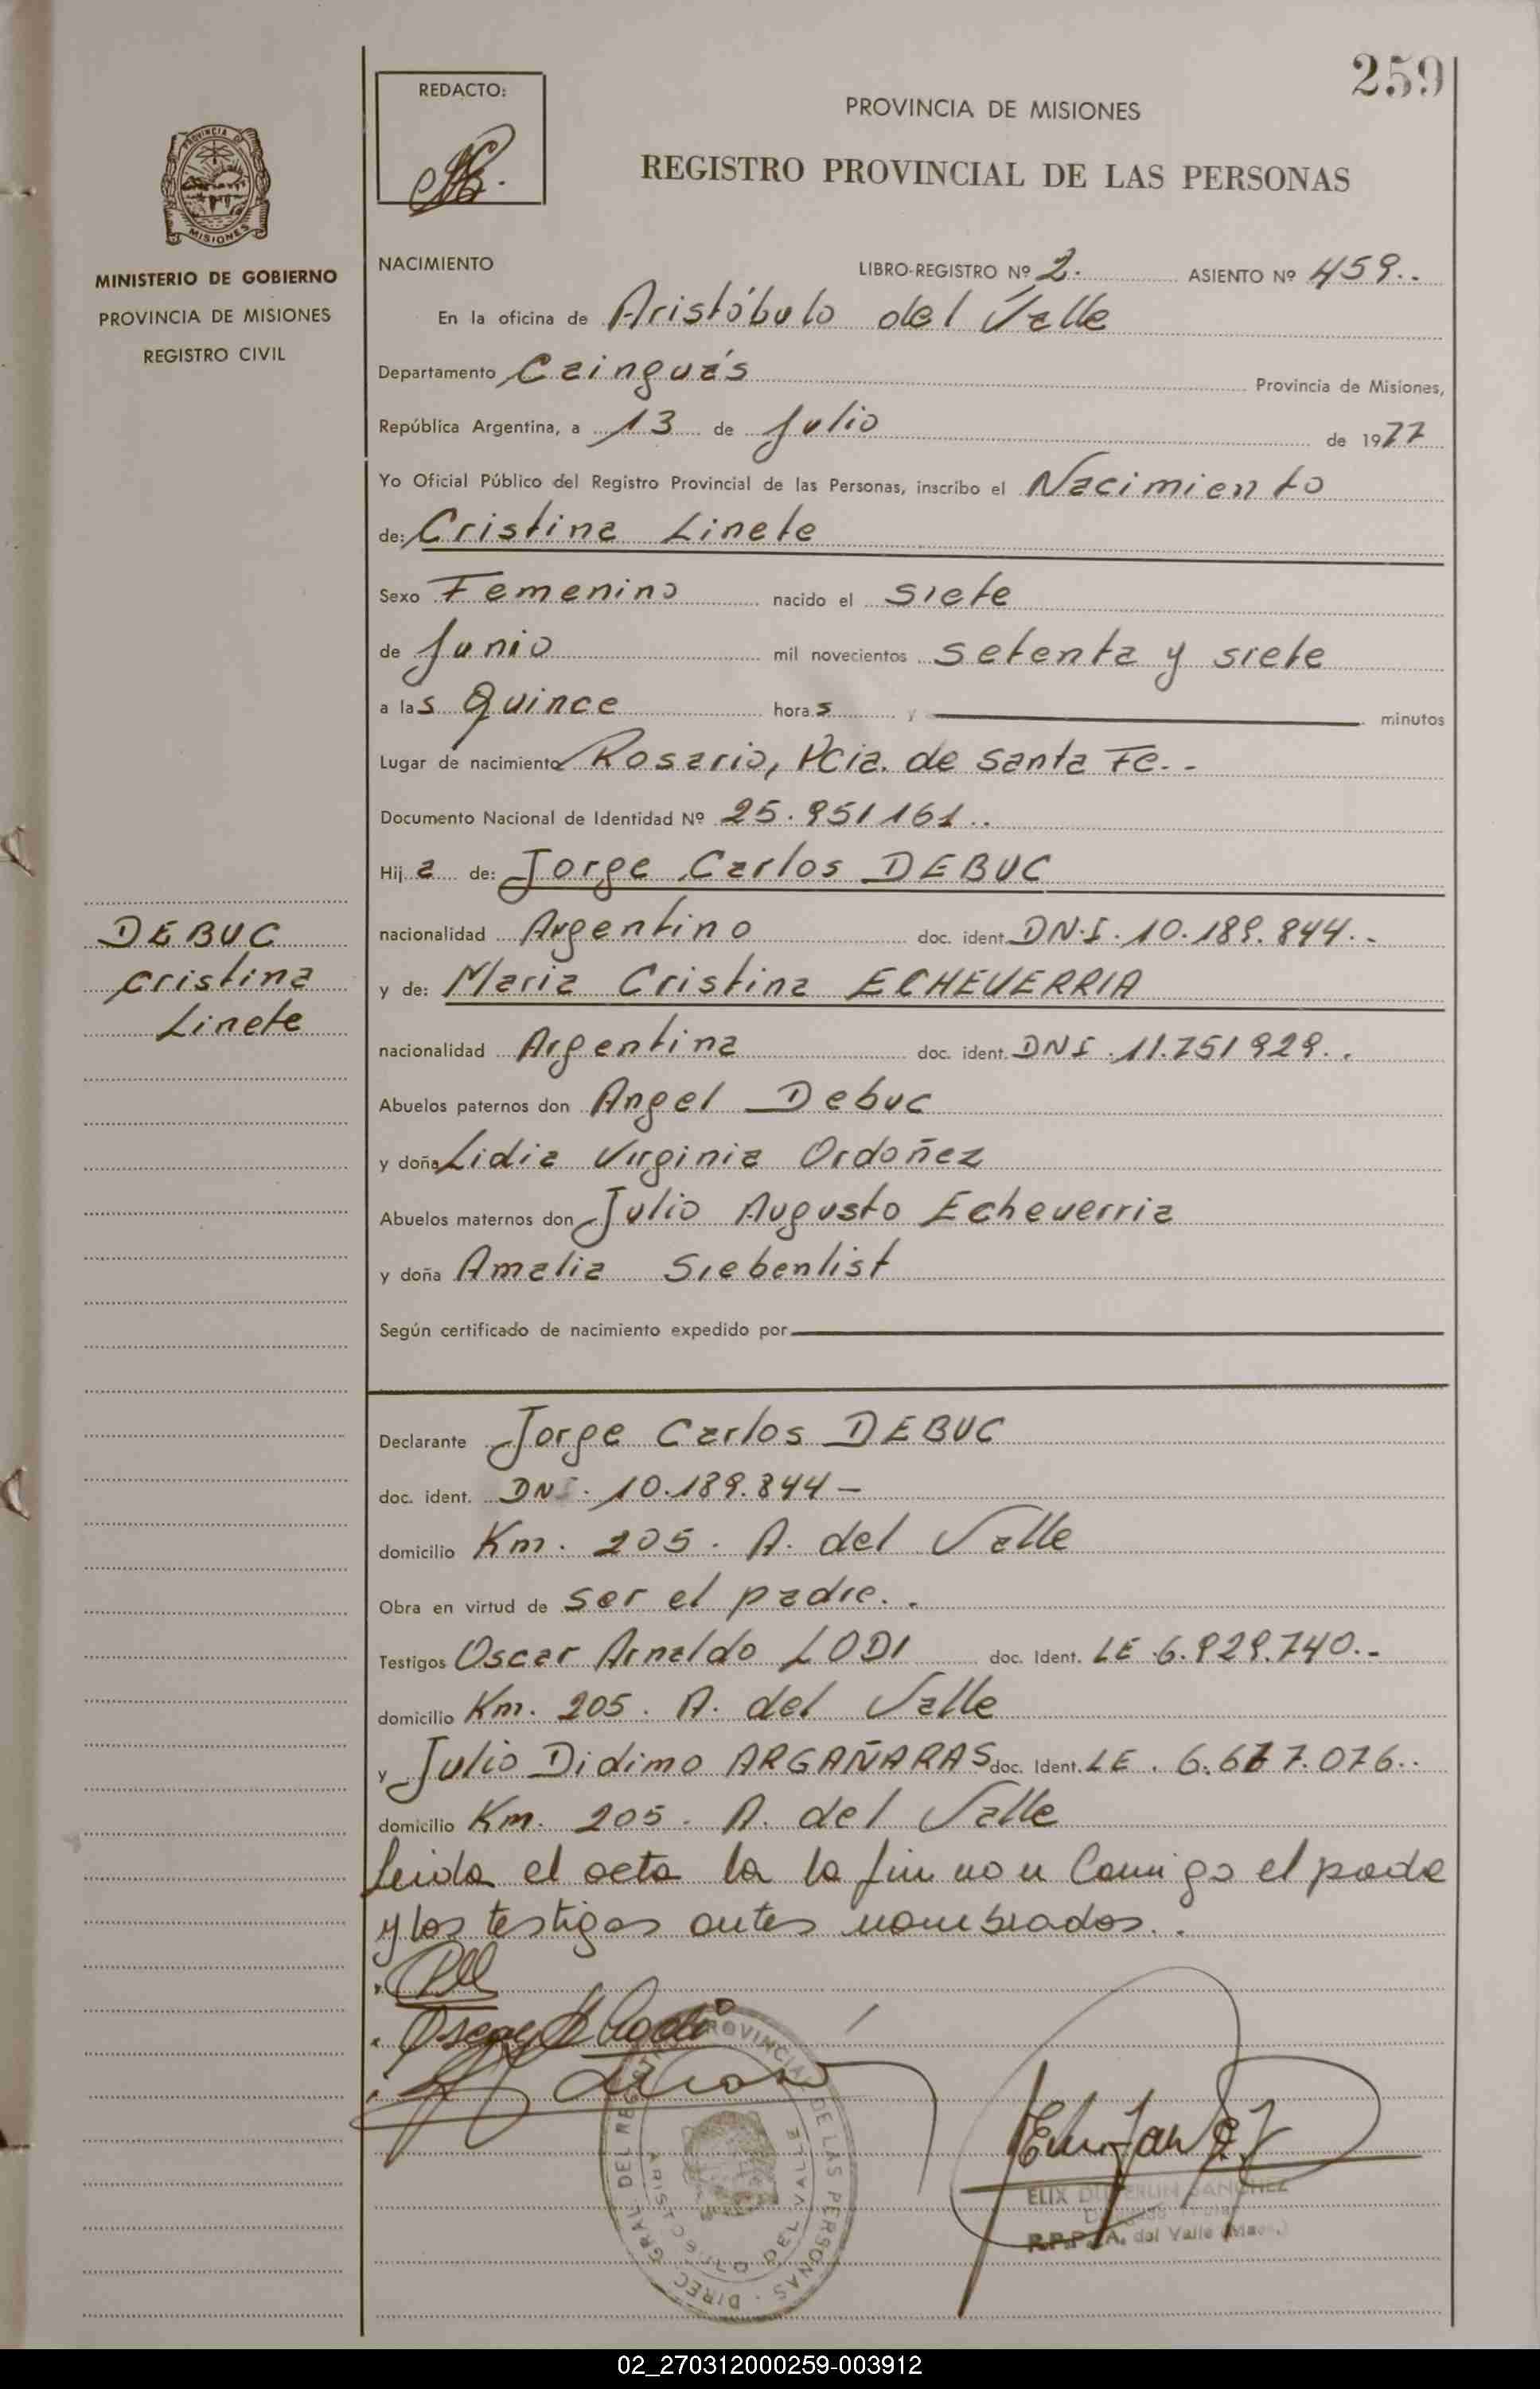 259
REDACTO:
PROVINCIA DE MISIONES
REGISTRO PROVINCIAL DE LAS PERSONAS
PROVINCIA DE
MISIONES
MINISTERIO DE GOBIERNO
PROVINCIA DE MISIONES
REGISTRO CIVIL
NACIMIENTO LIBRO-REGISTRO Nº 2. ASIENTO Nº 459..
En la oficina de Aristóbulo del Valle
Departamento Cainguás Provincia de Misiones,
República Argentina, a 13 de Julio de 1977
Yo Oficial Público del Registro Provincial de las Personas, inscribo el Nacimiento
de: Cristina Linete
Sexo Femenino nacido el siete
de Junio mil novecientos setenta y siete
a las Quince horas y minutos
Lugar de nacimiento Rosario, Pcia. de Santa Fe.-
Documento Nacional de Identidad Nº 25.951161..
Hija de: Jorge Carlos DEBUC
DEBUC
Cristina
Linete
nacionalidad Argentino doc. ident. DN.I. 10.189.844.-
y de: Maria Cristina ECHEVERRIA
nacionalidad Argentina doc. ident. DNI .11.751929..
Abuelos paternos don Angel Debuc
y doña Lidia Virginia Ordoñez
Abuelos maternos don Julio Augusto Echeverria
y doña Amalia Siebenlist
Según certificado de nacimiento expedido por
Declarante Jorge Carlos DEBUC
doc. ident. DNI. 10.189.844-
domicilio Km. 205. A. del Valle
Obra en virtud de ser el padre..
Testigos Oscar Arnaldo LODI doc. Ident. LE 6.929.740.-
domicilio Km. 205. A. del Valle
y Julio Didimo ARGAÑARAS doc. Ident. LE. 6.617.076..
domicilio Km. 205. A. del Valle
Leida el acta la firman Conmigo el padre
y los testigos antes nombrados..
DIREC. GRAL. DEL REGISTRO PROVINCIAL DE LAS PERSONAS
ARISTOBULO DEL VALLE
SANCHEZ
R.P.P. A. del Valle
02_270312000259-003912